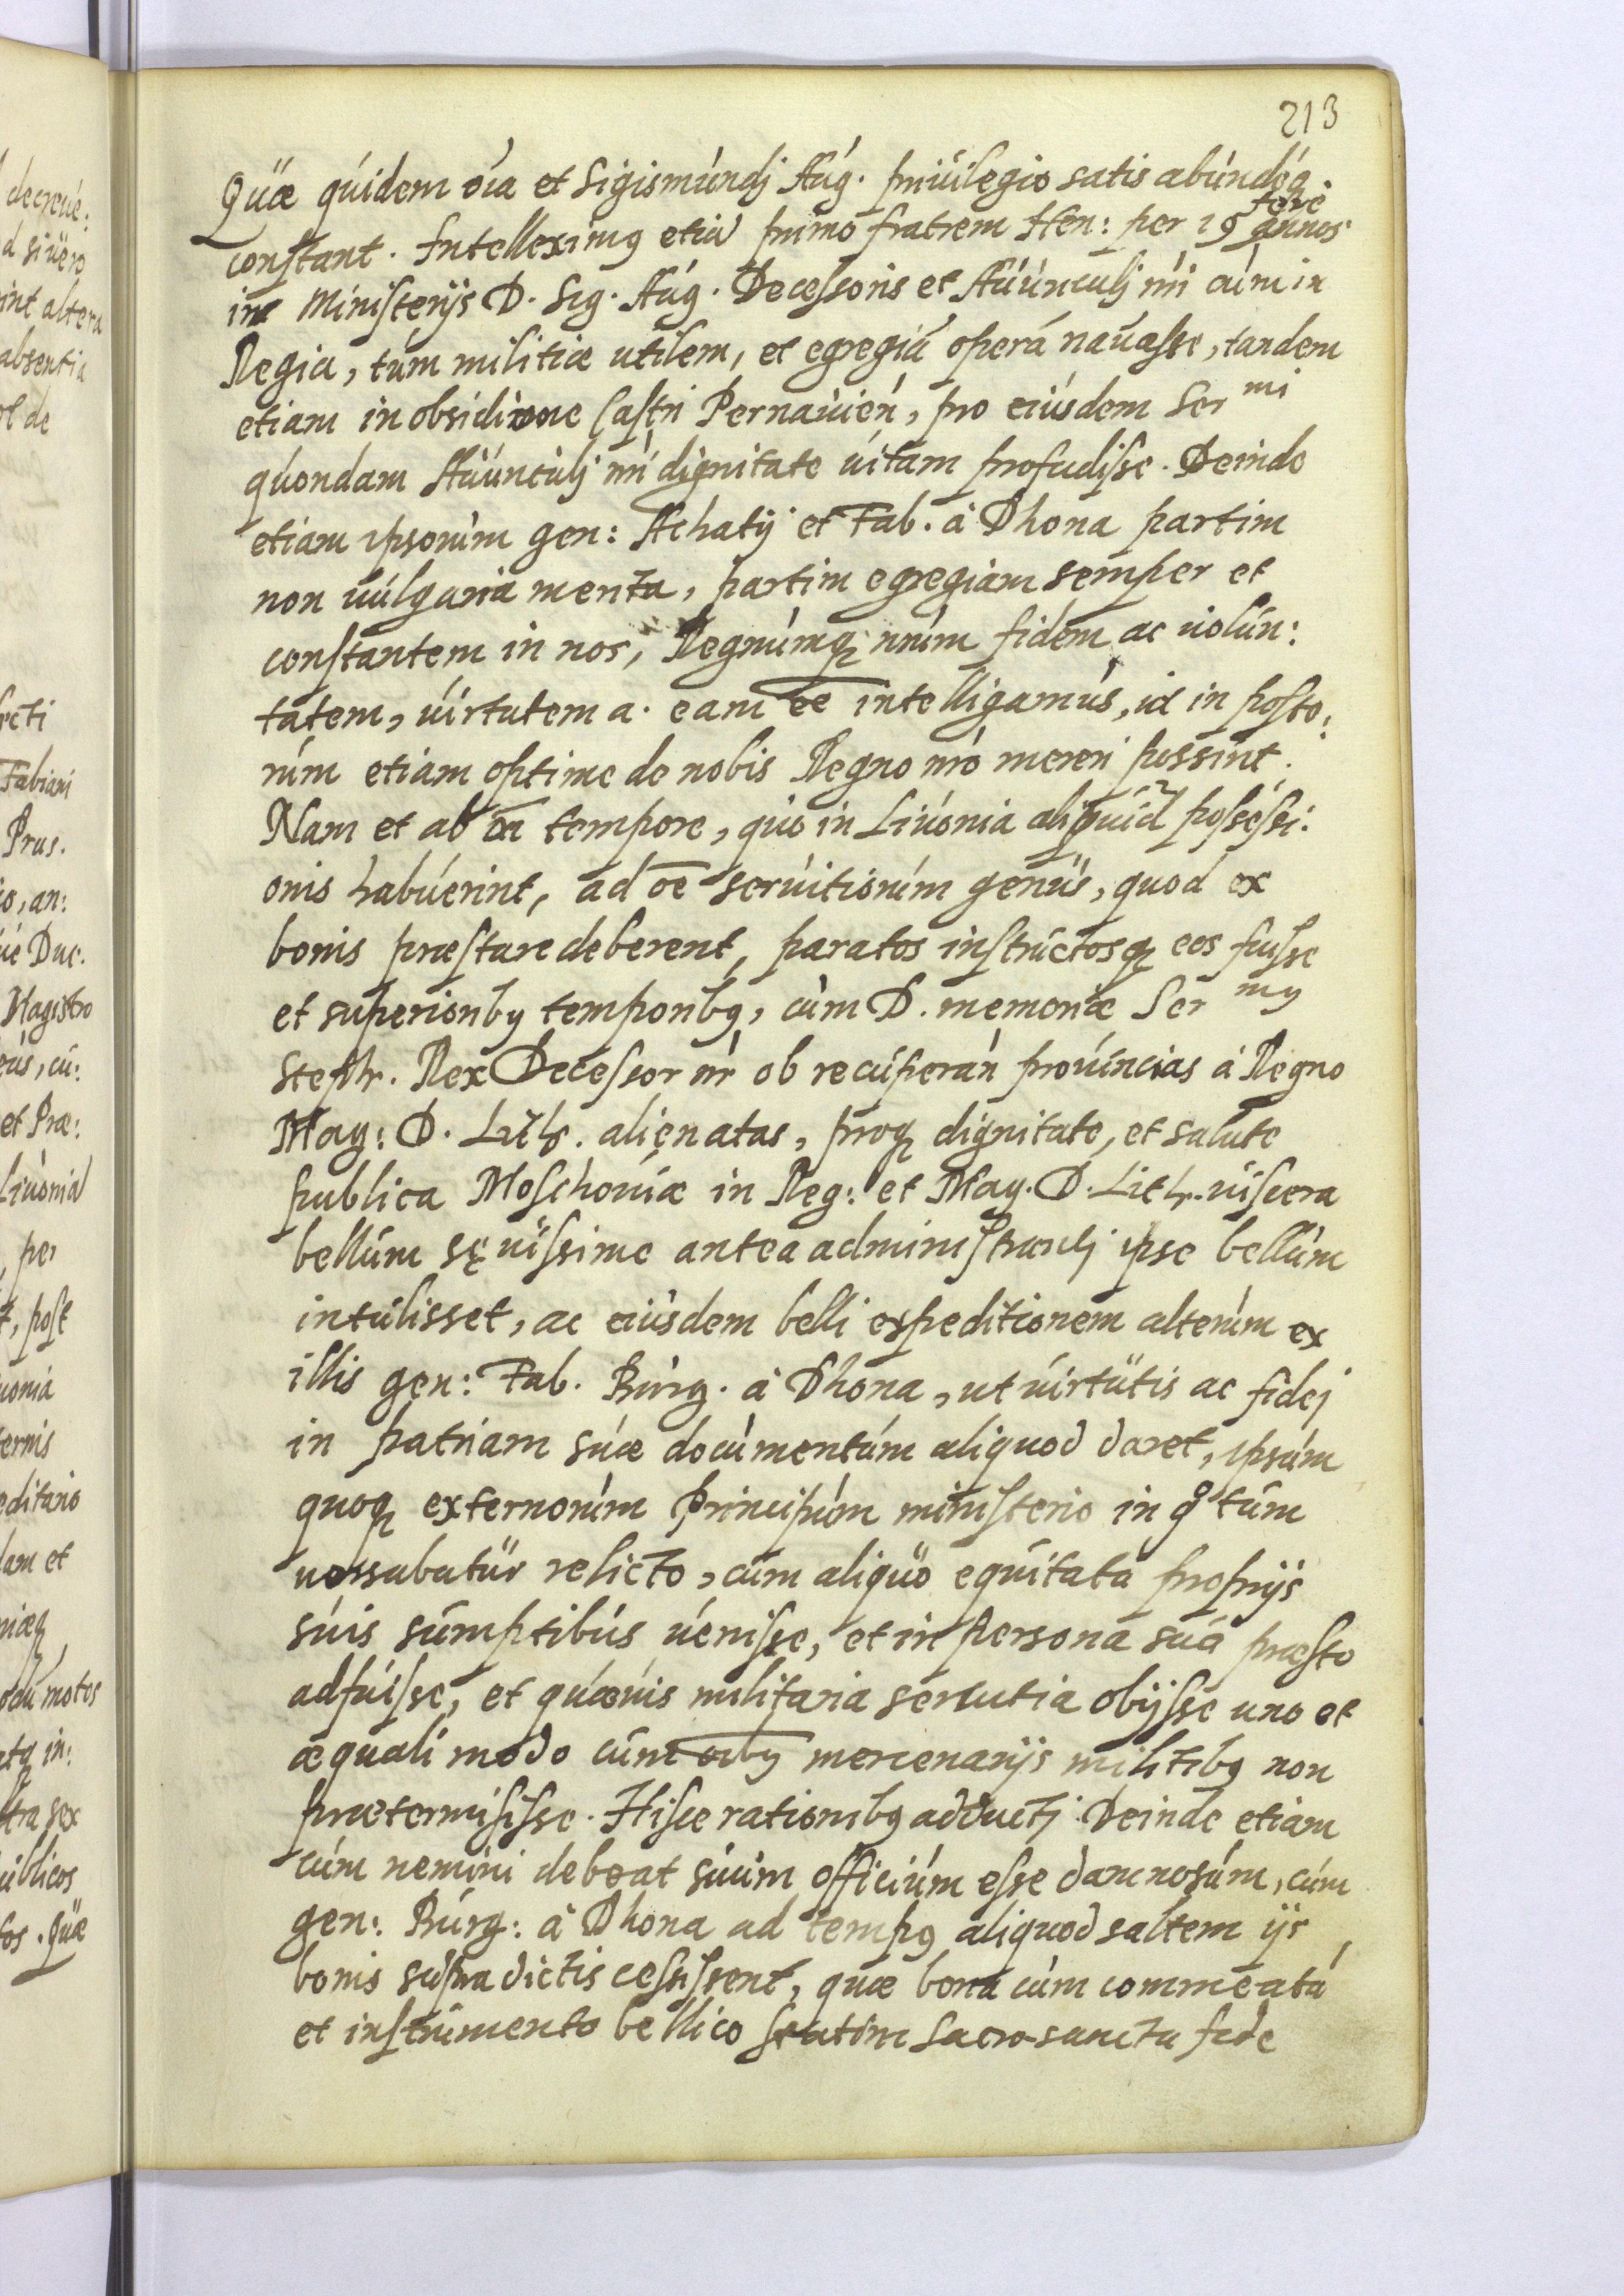 213
Quæ quidem oĩa et Sigismundj Aug. priuilegio satis abundéq.
constant. Intelleximq etiã primo fratrem Hen: per 19 fere annos
in Ministerijs D. Sig. Aug. Decessoris et Auunculj nri cum in
Regia, tum militiæ utilem, et egregiã operã nauasse, tandem
etiam in obsidione Castri Pernauien, pro eiusdem Ser mi
quondam Auunculj nri dignitate uitam profudisse. Deinde
etiam ipsorum gen: Achatij et Fab. à Dhona partim
non uulgaria merita, partim egregiam semper et
constantem in nos, Regnumq nrum fidem ac uolun:
tatem, uirtutem a. eam ee intelligamus, id in posto:
rum etiam optime de nobis Regno nro mereri possint.
Nam et ab eo tempore, quo in Liuonia aliquid possessi:
onis habuerint, ad oe seruitiorum genus, quod ex
bonis præstare deberent, paratos instructosq eos fuisse
et superioribq temporibq, cum D. memoriæ Ser mq
Steph. Rex Decessor nr ob recuperan prouincias à Regno
Mag: D. Lith. alienatas, proq dignitate, et salute
publica Moschouiæ in Reg: et Mag. D. Lith. uiscera
bellum sęuissime antea administrandj ipse bellum
intulisset, ac eiusdem belli expeditionem alterum ex
illis gen: Fab. Burg. à Dhona, ut uirtutis ac fidej
in patriam suæ documentum aliquod daret, ipsum
quoq externorum Principum ministerio in q tum
uersabatur relicto, cum aliquo equitatu proprijs
suis sumptibus uenisse, et in persona sua præsto
adfuisse, et quæuis militaria seruitia obijsse uno et
æquali modo cum oibq mercenarijs militibq non
prætermisisse. Hisce rationibq adductj. Deinde etiam
cum nemini debeat suum officium esse damnosum, cum
gen: Burg: à Dhona ad tempq aliquod saltem ijs
bonis supra dictis cessissent, quæ bona cum commeatu
et instrumento bellico statim sacrosancta fide